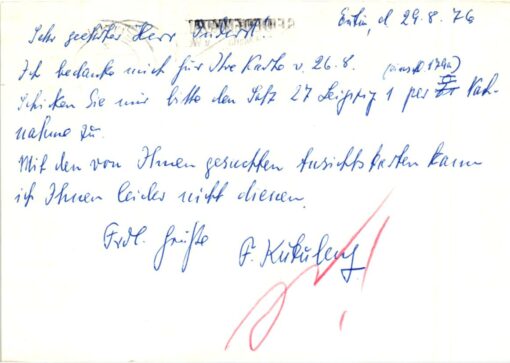 Eutin, d 29.8.76
Sehr geehrter Herr
Ich bedanke mich für Ihre Karte v. 26.8.
Schicken Sie mir bitte den Satz 27 Leipzig 1 per Nach-
nahme zu.
Mit den von Ihnen gesuchten Ansichtskarten kann
ich Ihnen leider nicht dienen.
Frdl. Grüße
F.